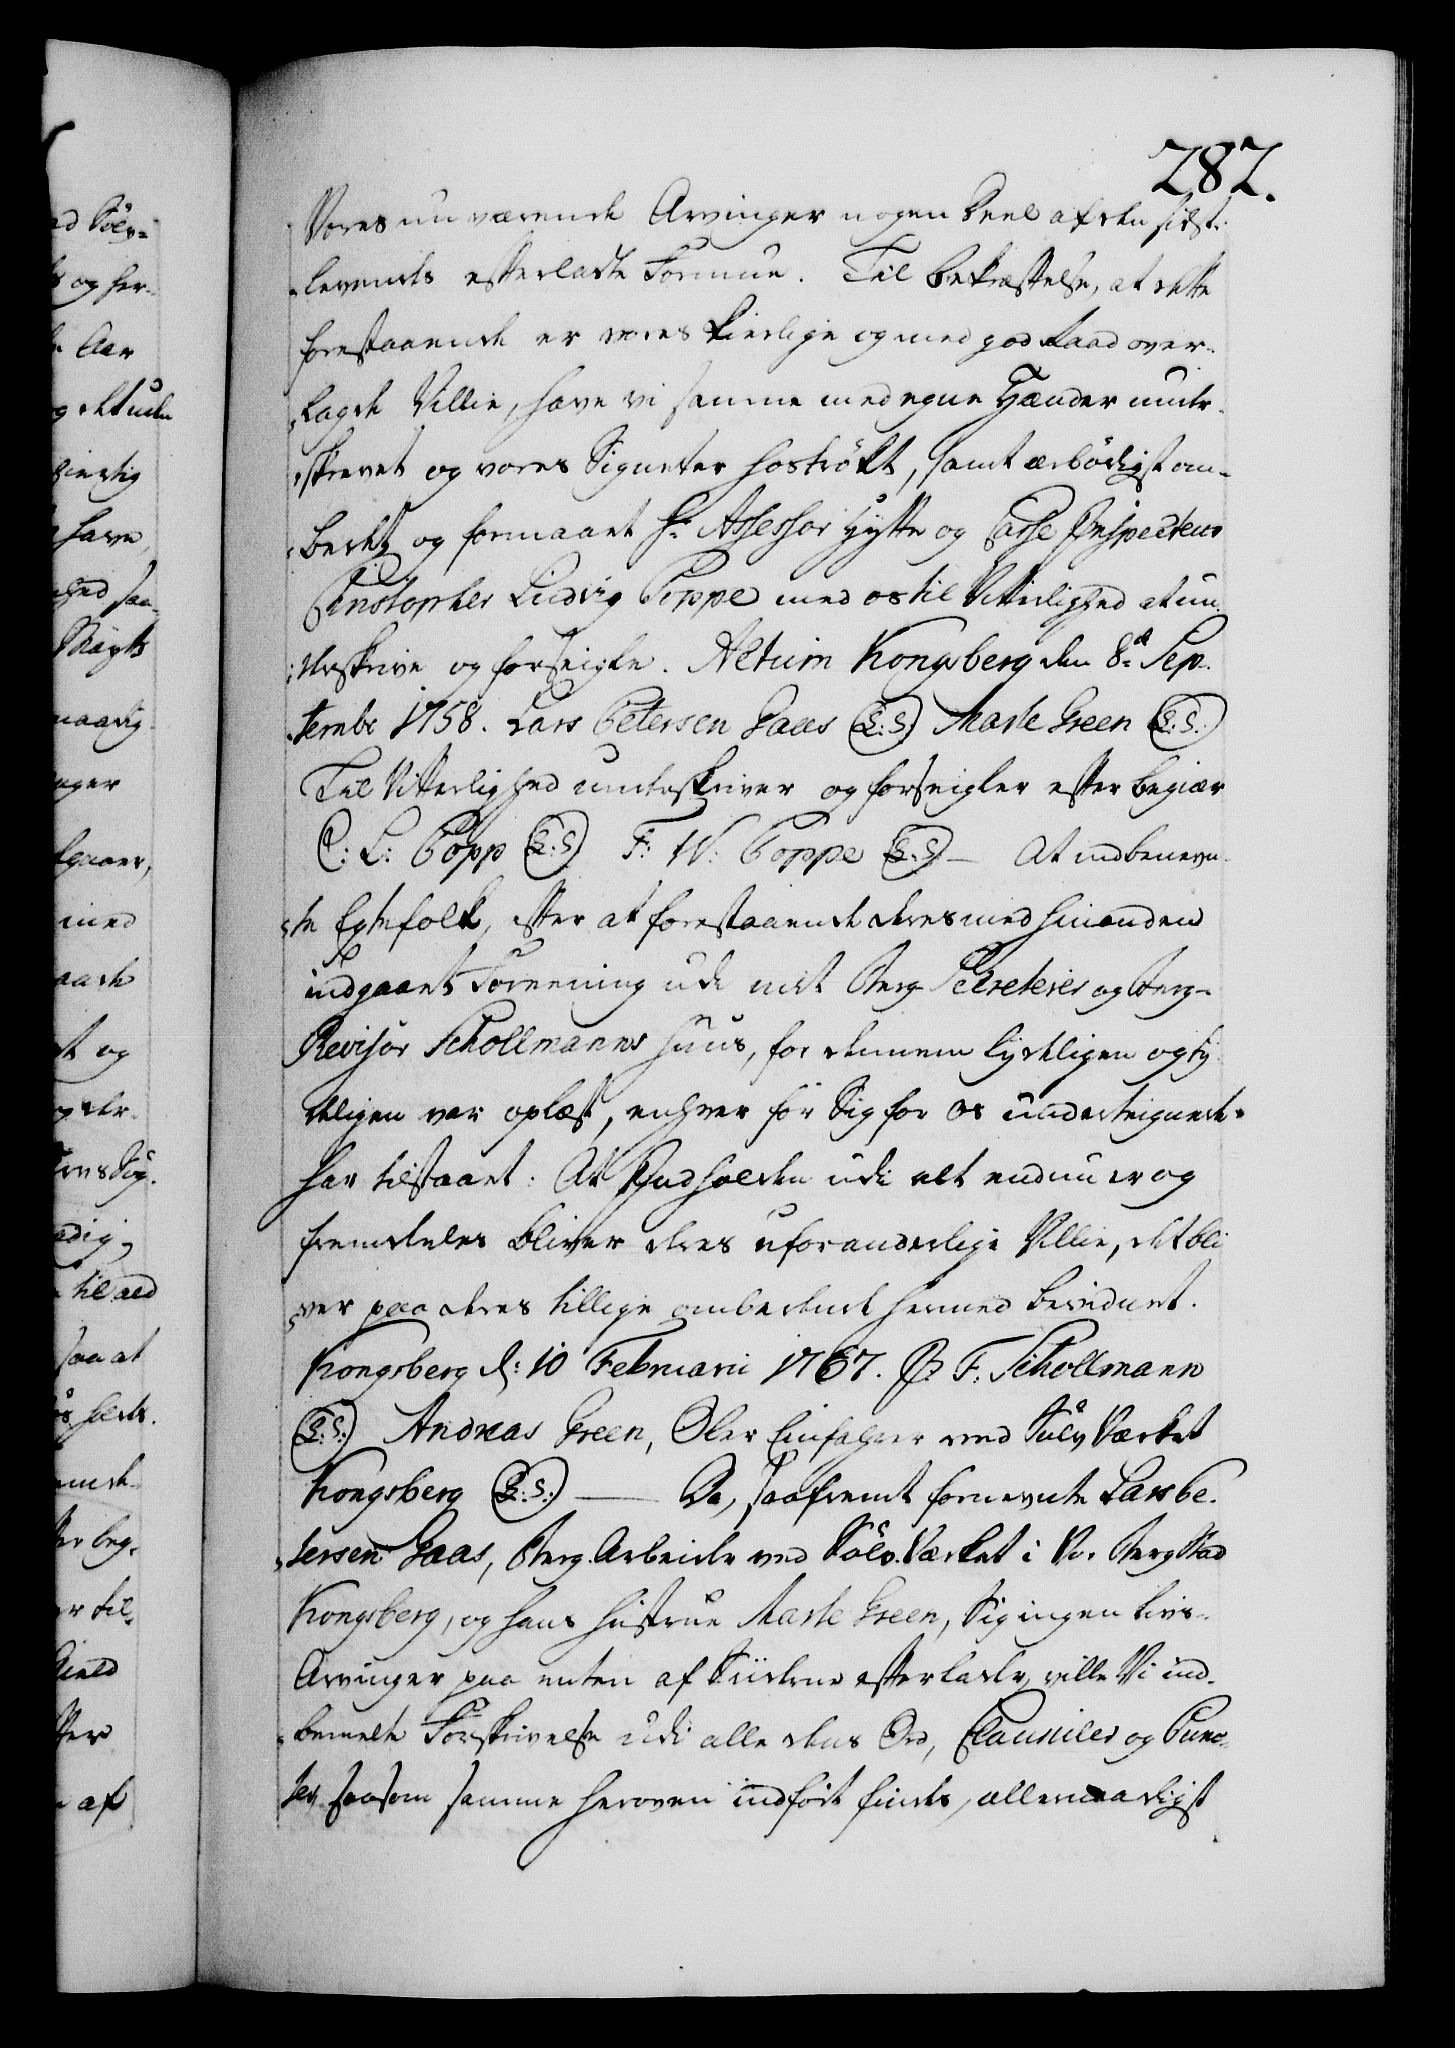 282.
Vores nu værende Arvinger nogen Deel af den sidst-
levendes efterladte Formue. Til Bekræftelse, at dette
forestaaende er vores kierlige og med god Raad over-
lagde Villie, have vi samme med egne Hænder under-
skrevet og vores Signeter hoströkt, samt ærbödigst om-
bedet og formaaet Hr Assessor Hytte og Casse Inspecteur
Christopher Ludvig Poppe med os til Vitterlighed at un-
derskrive og forseigle. Actum Kongsberg den 8de Sep-
tembr 1758. Lars Petersen Gaas (L:S:) Marte Green (L:S:)
Til Vitterlighed underskriver og forseigler efter begiær
C: L: Popp (L:S:) F: W: Poppe (L:S:) – At indbenevn-
te Egtefolk, efter at forestaaende deres med hinanden
indgaaet Forening udi mit Berg-Secreterer og Berg-
Revisor Schollmanns Huus, for dennem lydeligen og ty-
deligen var oplæst, enhver för Sig for os underteignede
har tilstaaet: At Indholden udi alt endnu er og
fremdeles bliver deres uforanderlige Villie, det bli
ver paa deres tillige ombedende hermed bevidnet.
Kongsberg d: 10 Februarii 1767. J. F. Schollmann
(L:S:) Andreas Green, Ober Einfahrer ved Sölv Værket
Kongsberg (L:S:) — Da, saafremt fornevnte Lars Pe-
tersen Gaas, Berg-Arbeider ved Sölv-Værket i Vor Berg Stad
Kongsberg, og hans Hustrue Marte Green, Sig ingen Livs-
Arvinger paa enten af Siiderne efterlader, ville Vi ind-
bemelte Forskrivelse udi alle dens Ord, Clausuler og Punc-
ter, saasom samme heroven indfört findes, allernaadigst